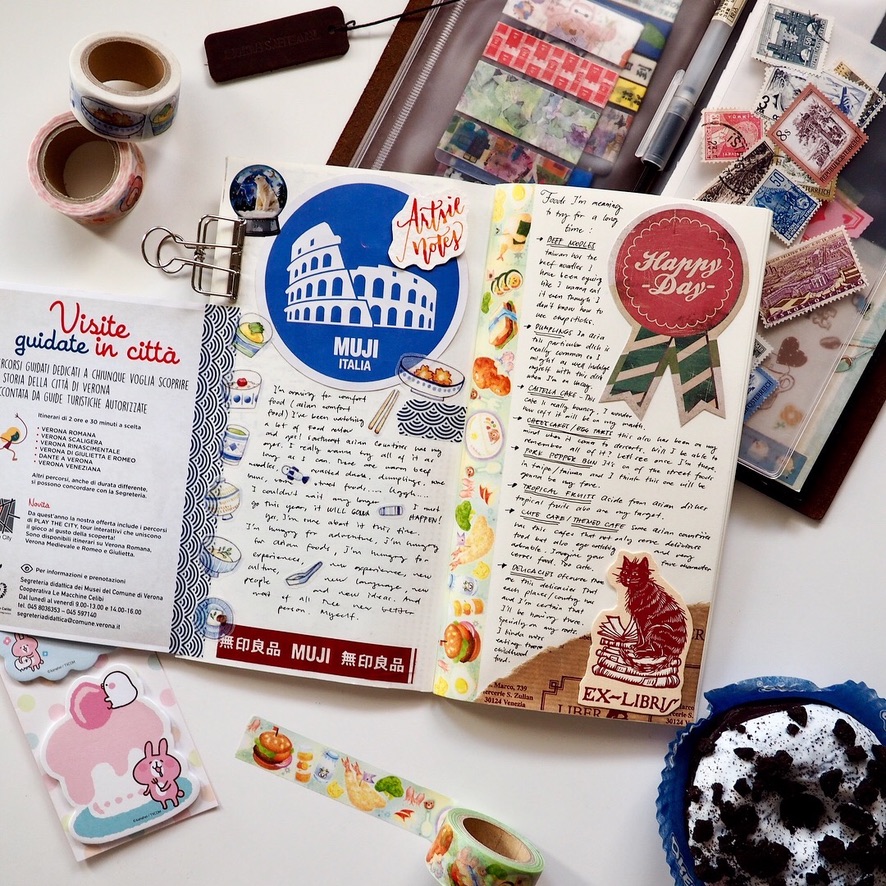 Visite
guidate in città
PERCORSI GUIDATI DEDICATI A CHIUNQUE VOGLIA SCOPRIRE
STORIA DELLA CITTÀ DI VERONA
DA GUIDE TURISTICHE AUTORIZZATE
Itinerari di 2 ore e 30 minuti a scelta
• VERONA ROMANA
• VERONA SCALIGERA
• VERONA RINASCIMENTALE
• VERONA DI GIULIETTA E ROMEO
• DANTE A VERONA
• VERONA VENEZIANA
Altri percorsi, anche di durata differente,
si possono concordare con la Segreteria.
Novità
Da quest'anno la nostra offerta include i percorsi
di PLAY THE CITY, tour interattivi che uniscono
il gioco al gusto della scoperta!
Sono disponibili itinerari su Verona Romana,
Verona Medievale e Romeo e Giulietta.
Per informazioni e prenotazioni
Segreteria didattica dei Musei del Comune di Verona
Cooperativa Le Macchine Celibi
Dal lunedì al venerdì 9.00-13.00 e 14.00-16.00
tel. 045 8036353 – 045 597140
segreteriadidattica@comune.verona.it
MUJI
ITALIA
Artsie
Notes
I'm craving for comfort
food (asian comfort
food) I've been watching
a lot of food review
and yes! Southeast asian countries has my
I really wanna try all of it as
as I can. There are warm beef
noodles, roasted dumplings, name
I couldn't wait any longer
go this year, it WILL GONNA HAPPEN!
Yes, I'm sure about it this time.
I'm hungry for adventure, I'm hungry
for asian foods, I'm hungry for
experience, new experience, new
culture, new language, new
people and new ideas. And
most of all new better
person. Myself.
無印良品 MUJI 無印良品
Foods I'm meaning
to try for a long
time:
BEEF NOODLES
Taiwan has the
beef noodles I
have been eyeing
like I wanna eat
it even though I
don't know how to
use chopsticks.
DUMPLINGS In Asia
this particular dish is
really common so I
might as well indulge
myself with this dish
CASTELLA CAKE - This
cake is really bouncy. I wonder
how soft it will be in my mouth
CHEESECAKES/EGG TARTS this also has been on my
when it comes to desserts. Will I be able to
remember all of it? Let's see once I'm there
PORK PEPPER BUN It's one of the street foods
in taipei/taiwan and I think this one will be
gonna be my fave.
TROPICAL FRUITS Aside from asian dishes
fruits also are my target.
CUTE CAFE/THEMED CAFE Some asian countries
has this cafes that not only serve delicious
food but also
adorable. Imagine your
DELICACIES
are this delicacies that
each places/country
and I'm certain that
I'll be having those.
Specially on my
I kinda
eating those
childhood
food.
Happy
-Day-
EX-LIBRIS
Marco, 739
Mercerie S. Zulian
30124 Venezia
LIBER